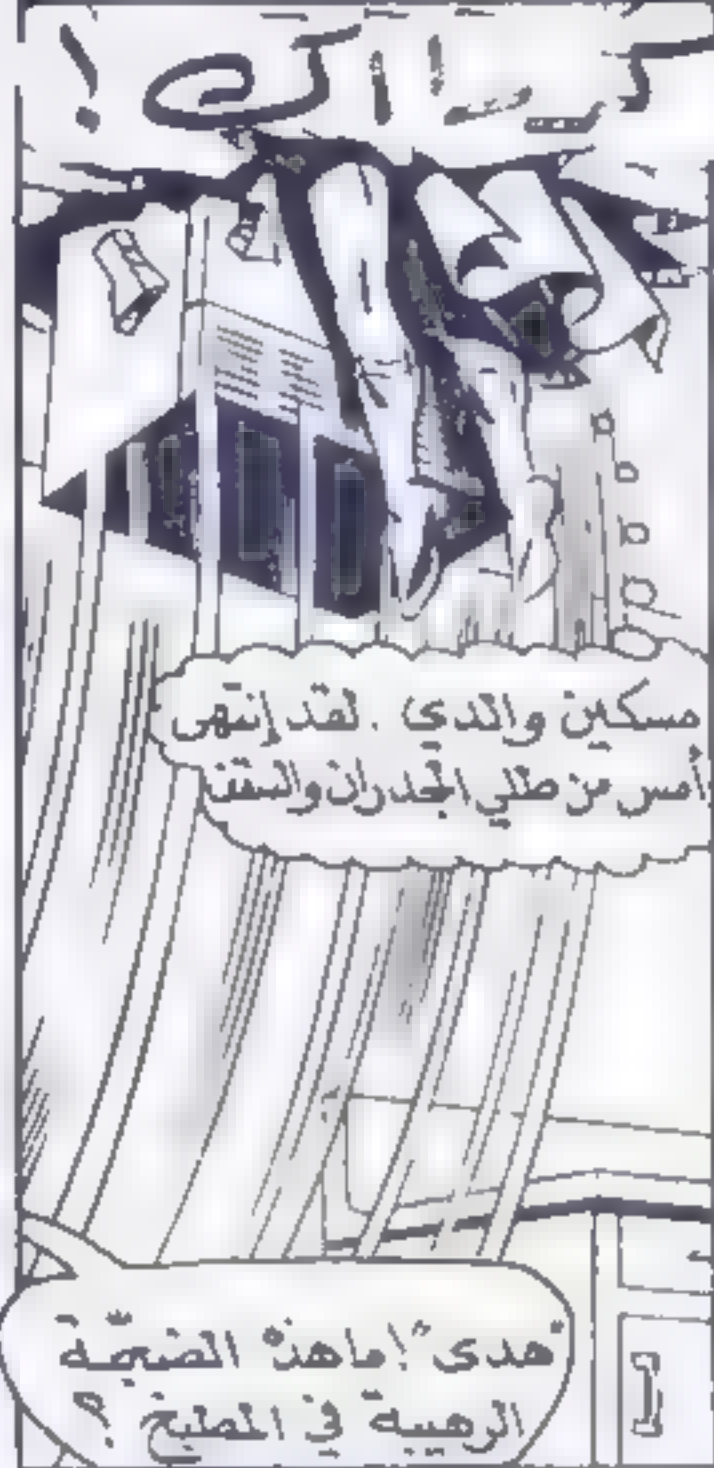 كرااك !
مسكين والدي . لقد إنتهى
أمس من طلي الجدران والسقف
"هدى"! ما هذه الضجة
الرهيبة في المطبخ ؟